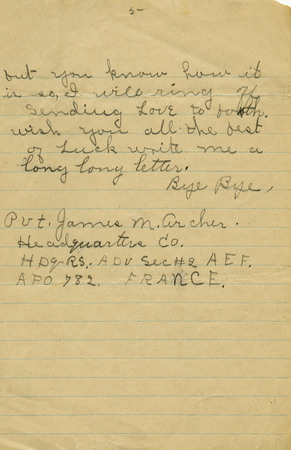 5-
but you know how it
is so, I will ring off
sending Love to both.
wish you all the best
of Luck write me a
long long letter.
Bye Bye,
Pvt. James M. Archer.
Headquarters Co.
HDQ-RS. ADV Sec #2 A E F.
APO 782. FRANCE.